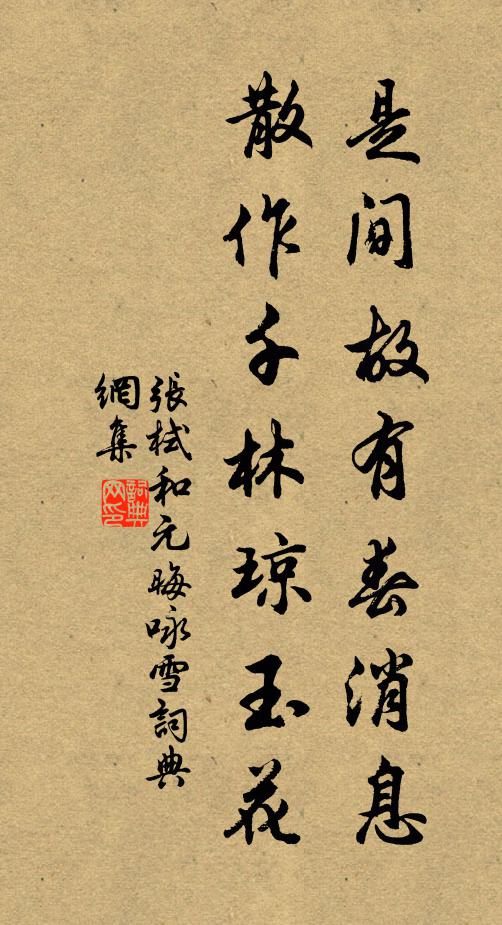 是间故有春消息
散作千林琼玉花
張栻和元晦咏雪詞典
網集
詞典
网印